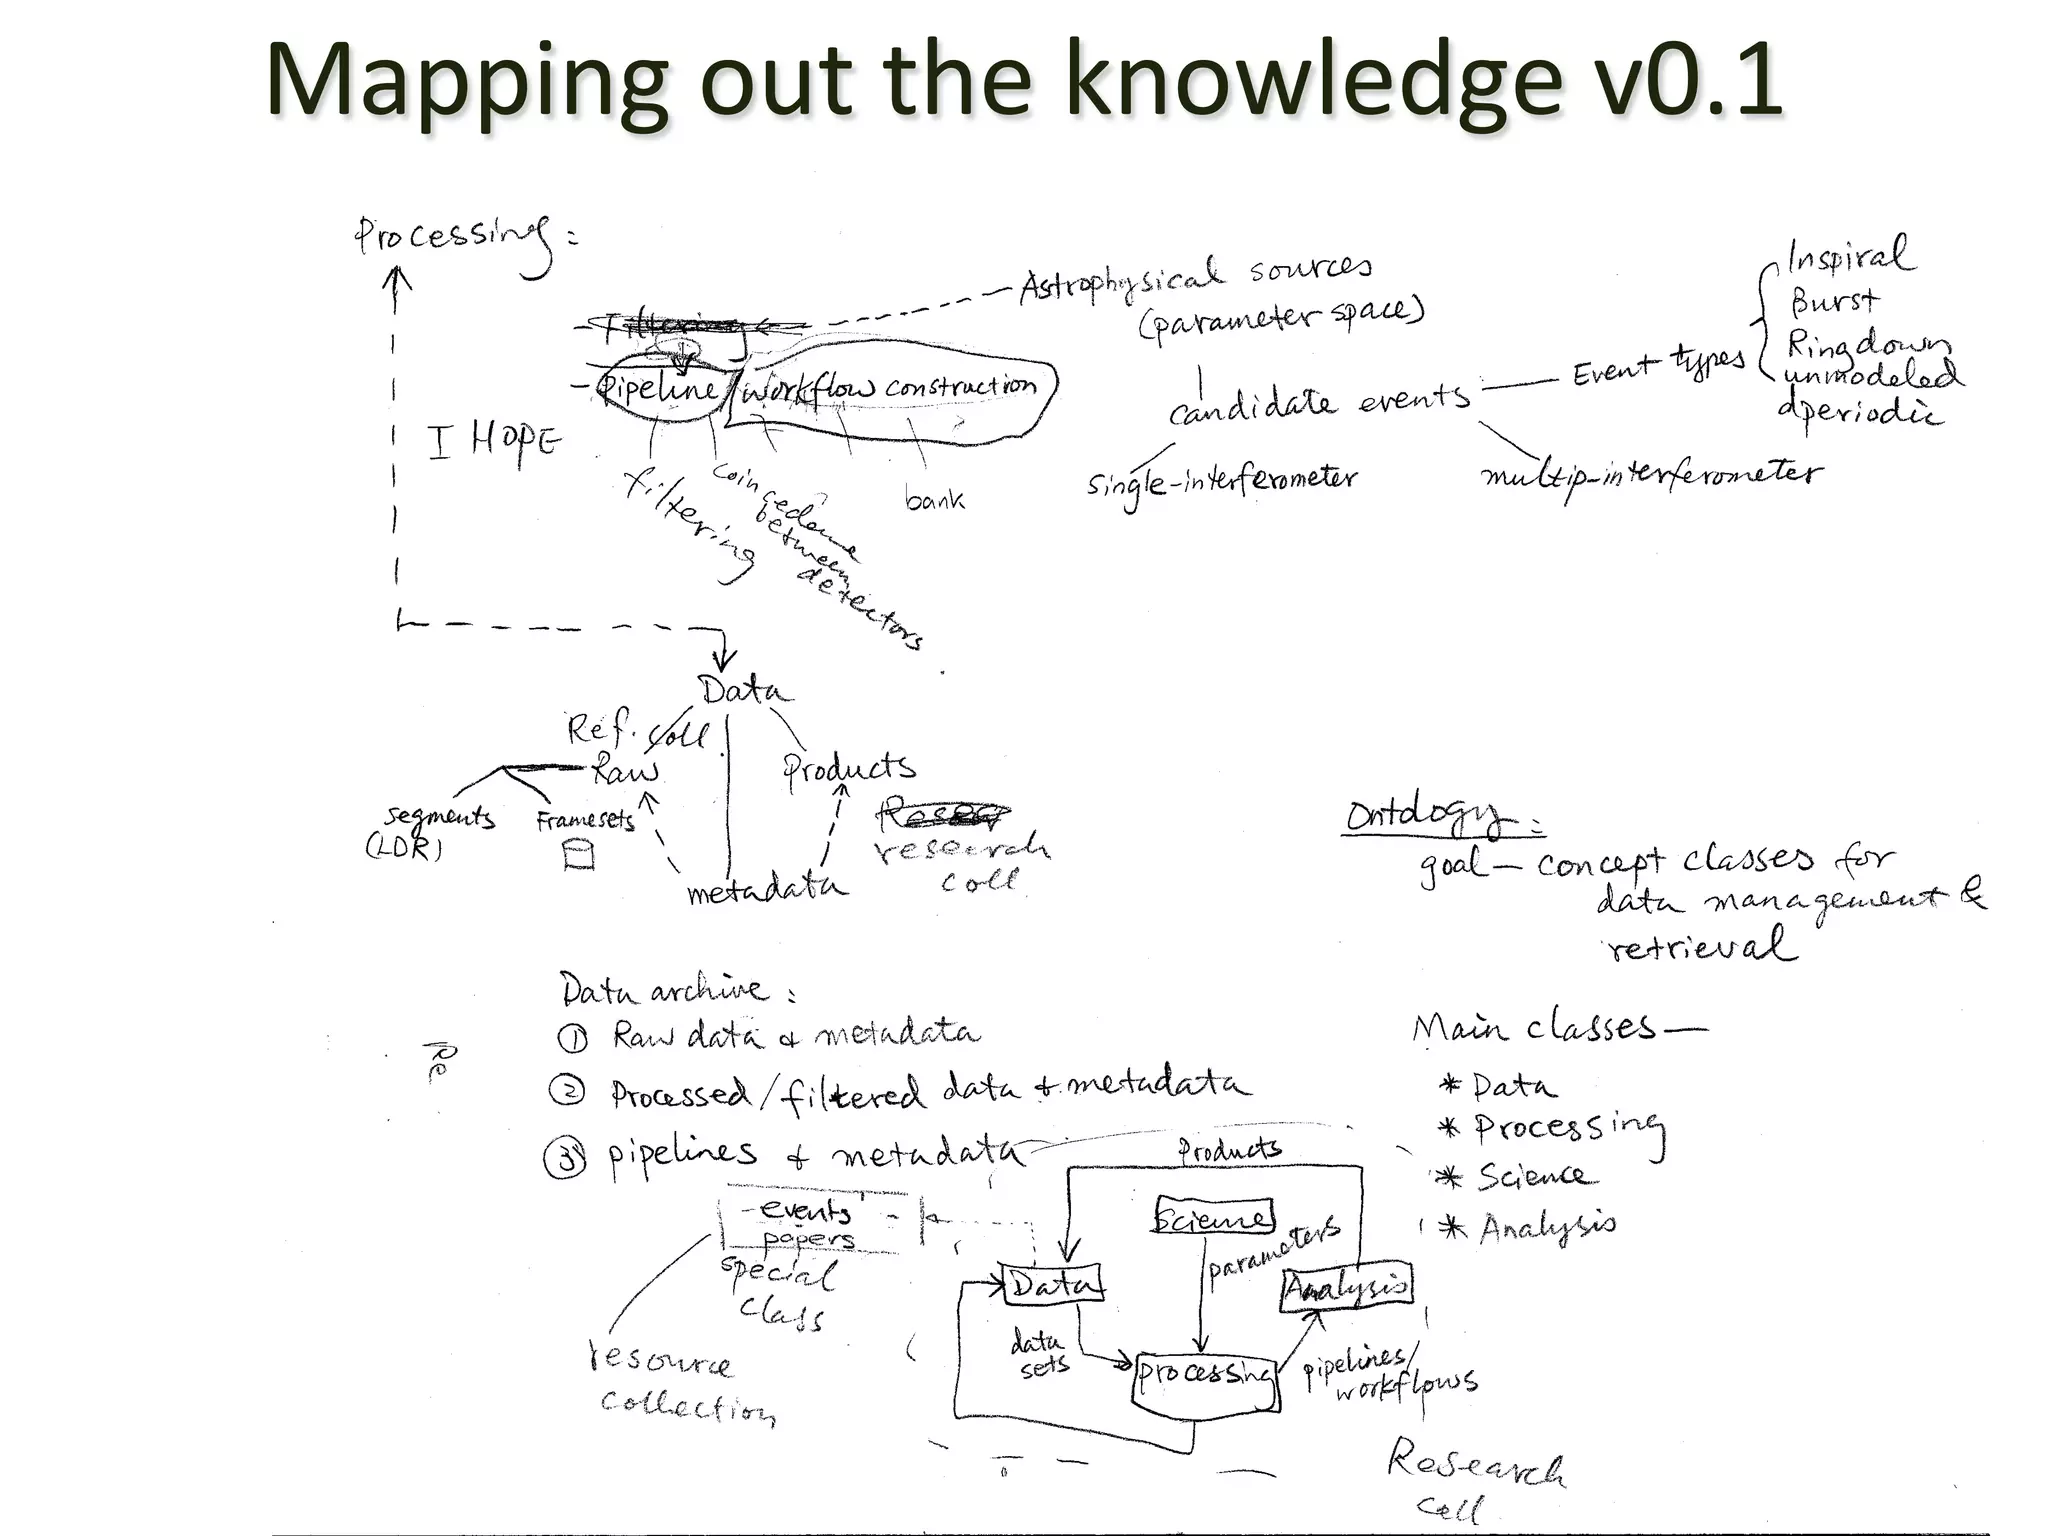 Mapping out the knowledge v0.1
Processing:
Astrophysical sources
(parameter space)
Inspiral
Burst
Ringdown
unmodeled
aperiodic
Event types
- Filtering
- Pipeline/workflow construction
candidate events
I HOPE
filtering
between
detectors
bank
single-interferometer
multip-interferometer
Data
Ref. Coll.
Raw
Products
segments
(LDR)
Framesets
research
coll.
metadata
Ontology:
goal — concept classes for
data management &
retrieval
Data archive:
① Raw data & metadata
② Processed/filtered data & metadata
③ pipelines & metadata
Main classes —
* Data
* Processing
* Science
* Analysis
Products
- events
papers
special
class
Science
parameters
Data
Analysis
data
sets
processing
pipelines/
workflows
resource
collection
Research